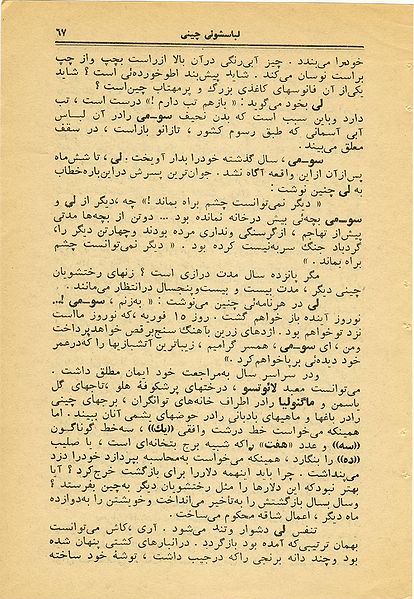 لباسشوئی چینی
۶۷
خودرا می‌بندد . چیز آبی‌رنگی درآن بالا ازراست بچپ واز چپ
براست نوسان می‌کند . شاید پیش‌بند اطوخورده‌ئی است ؟ شاید
یکی‌از آن فانوسهای کاغذی بزرگ و پرمهتاب چین‌است ؟
لی بخود می‌گوید : « بازهم تب دارم !» درست است ، تب
دارد وباین سبب است که بدن نحیف سو-می رادر آن لباس
آبی آسمانی که طبق رسوم کشور ، تازانو بازاست ، در سقف
معلق می‌بیند .
سو-می ، سال گذشته خودرا بدار آویخت . لی ، تا شش‌ماه
پس‌ازآن ازاین واقعه آگاه نشد . جوان‌ترین پسرش دراین‌باره‌خطاب
به لی چنین نوشت :
« دیگر نمی‌توانست چشم براه بماند !» چه ،دیگر از لی و
سو-می بچه‌ئی بیش درخانه نمانده بود ... دوتن از بچه‌ها مدتی
پیش‌از تهاجم ، ازگرسنگی ونداری مرده بودند وچهارتن دیگر را،
گردباد جنگ سربه‌نیست کرده بود . « دیگر نمی‌توانست چشم
براه بماند . »
مگر پانزده سال مدت درازی است ؟ زنهای رختشویان
چینی دیگر ، مدت بیست و بیست‌وپنجسال درانتظار می‌مانند .
لی در هرنامه‌ئی چنین می‌نوشت : « به‌زنم ، سو-می !...
نوروز آینده باز خواهم گشت . روز ۱۵ فوریه ،که نوروز مااست
نزد توخواهم بود . اژدهای زرین باهنگ سنج‌برقص خواهدپرداخت
ومن ، ای سو-می ، همسر گرامیم ، زیباترین آتشبازیها را که‌درعمر
خود دیده‌ئی برپاخواهم‌کرد .»
ودر سراسر سال به‌مراجعت خود ایمان مطلق داشت .
می‌توانست معبد لائوتسو ، درختهای پرشکوفهٔ هلو ،تاجهای گل
یاسمن و ماگنولیا رادر اطراف خانه‌های توانگران ، برجهای چینی
رادر باغها و ماهیهای بادبانی رادر حوضهای یشمی آنان ببیند. اما
همینکه می‌خواست خط درشت وافقی «یك» ، سه‌خط گوناگون
«سه» و عدد «هفت» راکه شبیه برج بتخانه‌ای است ، یا صلیب
«ده» را بنگارد ، همینکه می‌خواست به‌محاسبه بپردازد خودرا دزد
می‌پنداشت . چرا باید اینهمه دلاررا برای بازگشت خرج‌کرد ؟ آیا
بهتر نبودکه این دلارها را مثل رختشویان دیگر به‌چین بفرستد ؟
وسال بسال بازگشتش را به‌تاخیر می‌انداخت وخویشتن را به‌دوازده
ماه دیگر ، اعمال شاقه محکوم می‌ساخت .
تنفس لی دشوار وتند می‌شود . آری ،کاش می‌توانست
بهمان ترتیبی‌که آمده بود بازگردد . درانبارهای کشتی پنهان شده
بود وچند دانه برنجی راکه درجیب داشت ، توشهٔ خود ساخته